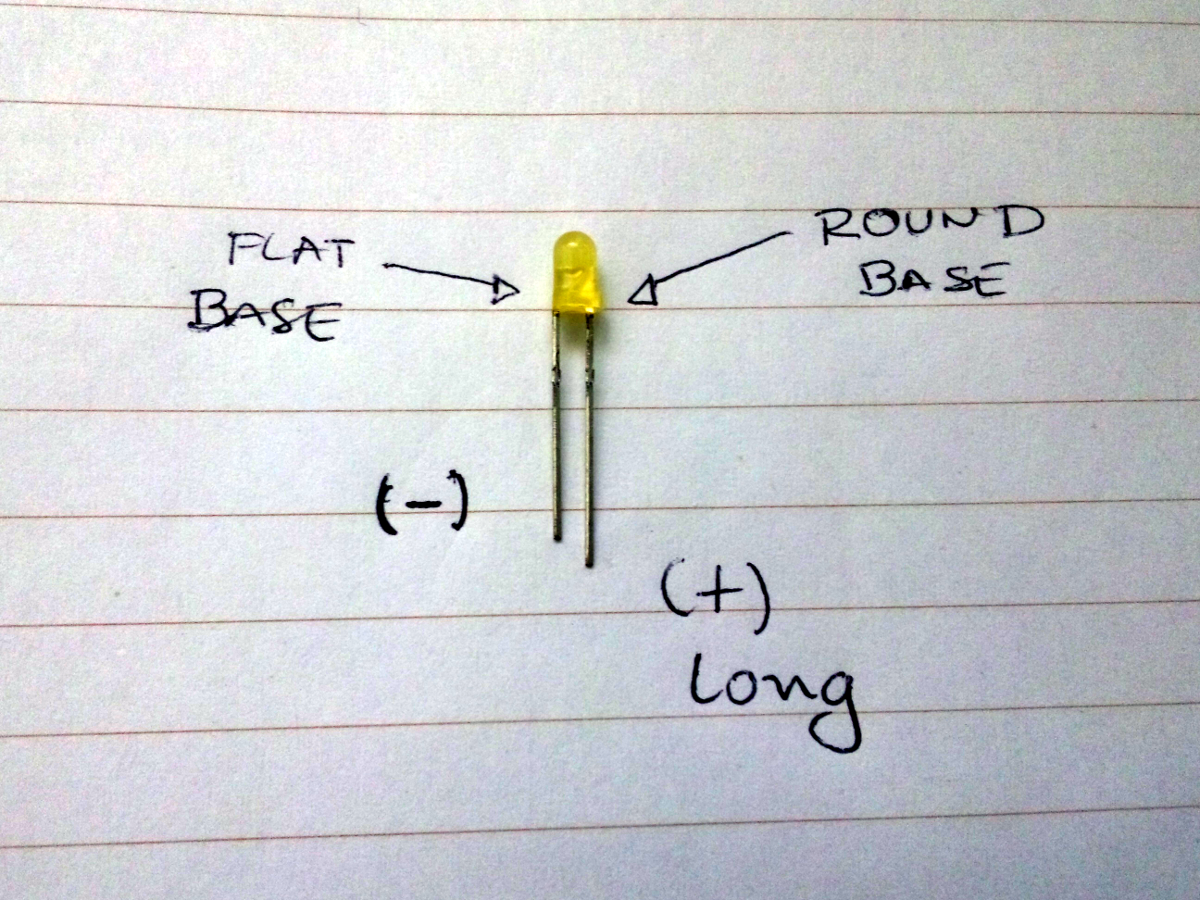 FLAT
BASE
ROUND
BASE
(-)
(+)
Long